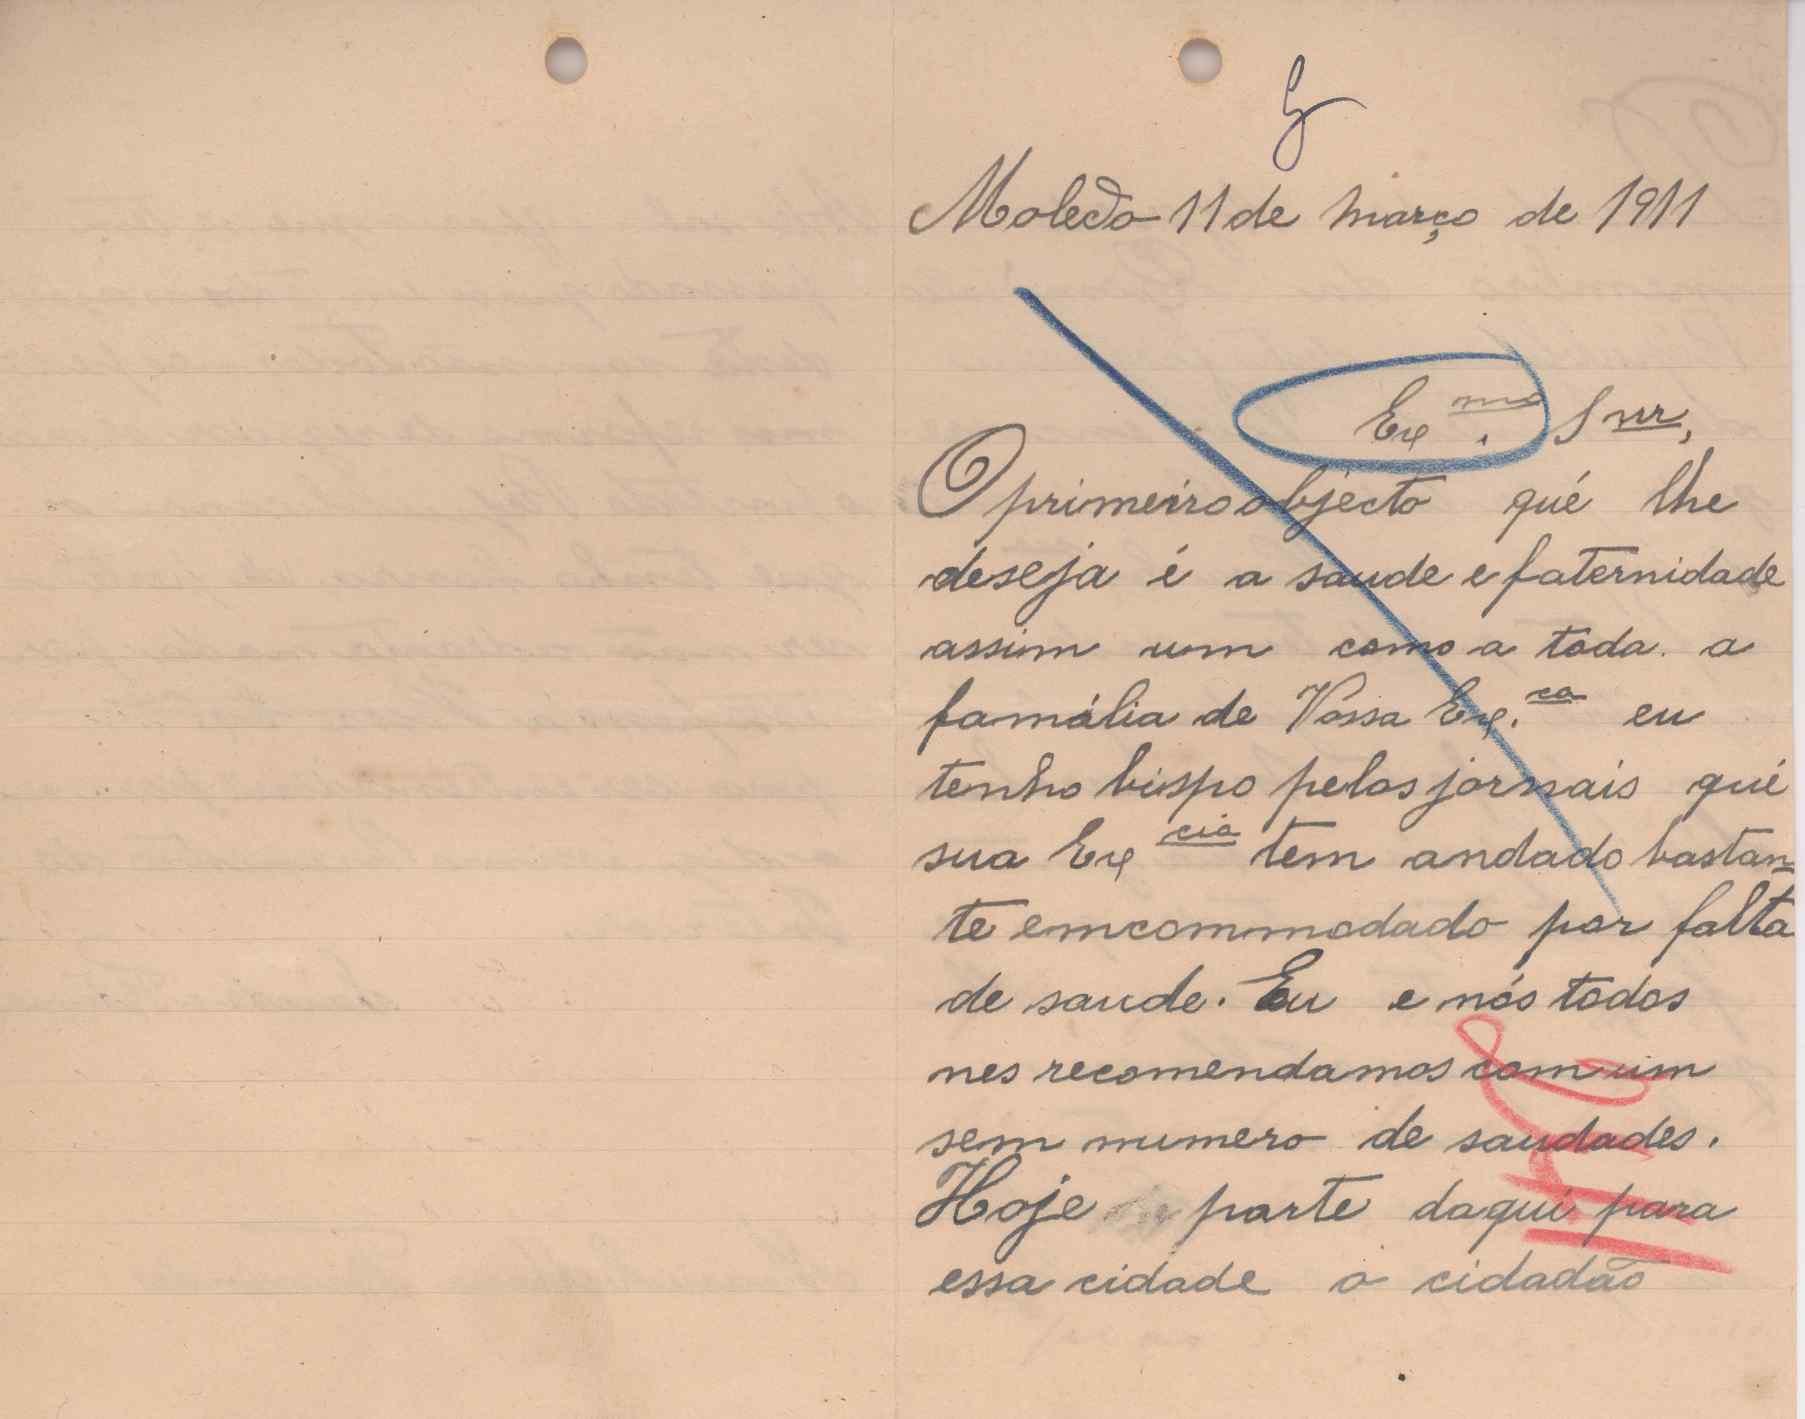 Moledo 11 de março de 1911
Ex.mo Snr,
O primeiro objecto qué lhe
deseja é a saude e faternidade
assim um como a toda a
famália de Vossa Ex.ca eu
tenho bispo pelos jornais qué
sua Excia tem andado bastan=
te emcommodado por falta
de saude. Eu e nós todos
nes recomendamos com um
sem numero de saudades.
Hoje parte daqui para
essa cidade o cidadão